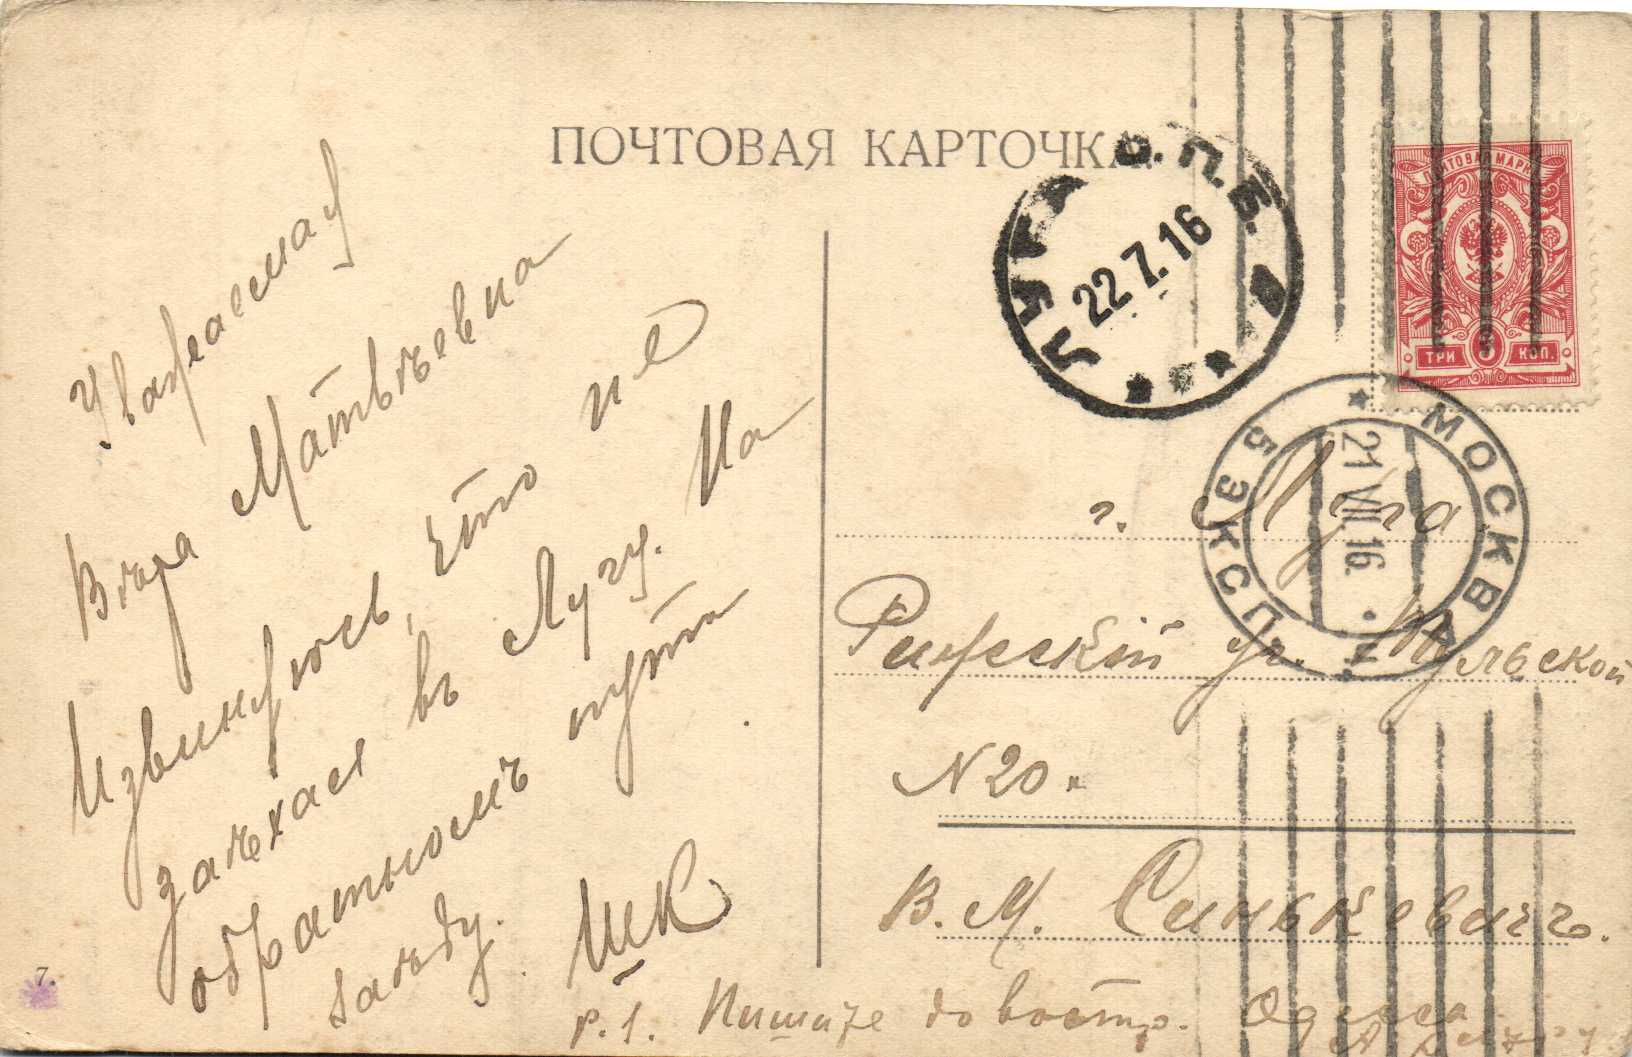 ПОЧТОВАЯ КАРТОЧКА
ПОЧТОВАЯ МАРКА
ТРИ 3 КОП.
ЛУГА С.П.Б.
22.7.16
МОСКВА
5 ЭКСП.
21.VII.16.
Уважаемая
Вѣра Матвѣевна
Извиняюсь, что не
заѣхал въ Лугу. На
обратномъ пути
заѣду.
ШК
г. Луга
Рижскій уг. Тульской
N 20.
В. М. Синькевичъ.
P. S. Пишите до востр. Одесса
7.